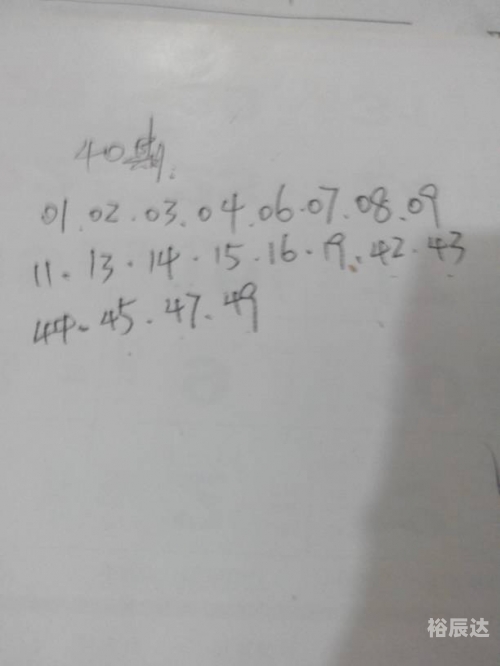 40期:
01.02.03.04.06.07.08.09
11.13.14.15.16.19.42.43
44.45.47.49
裕辰达